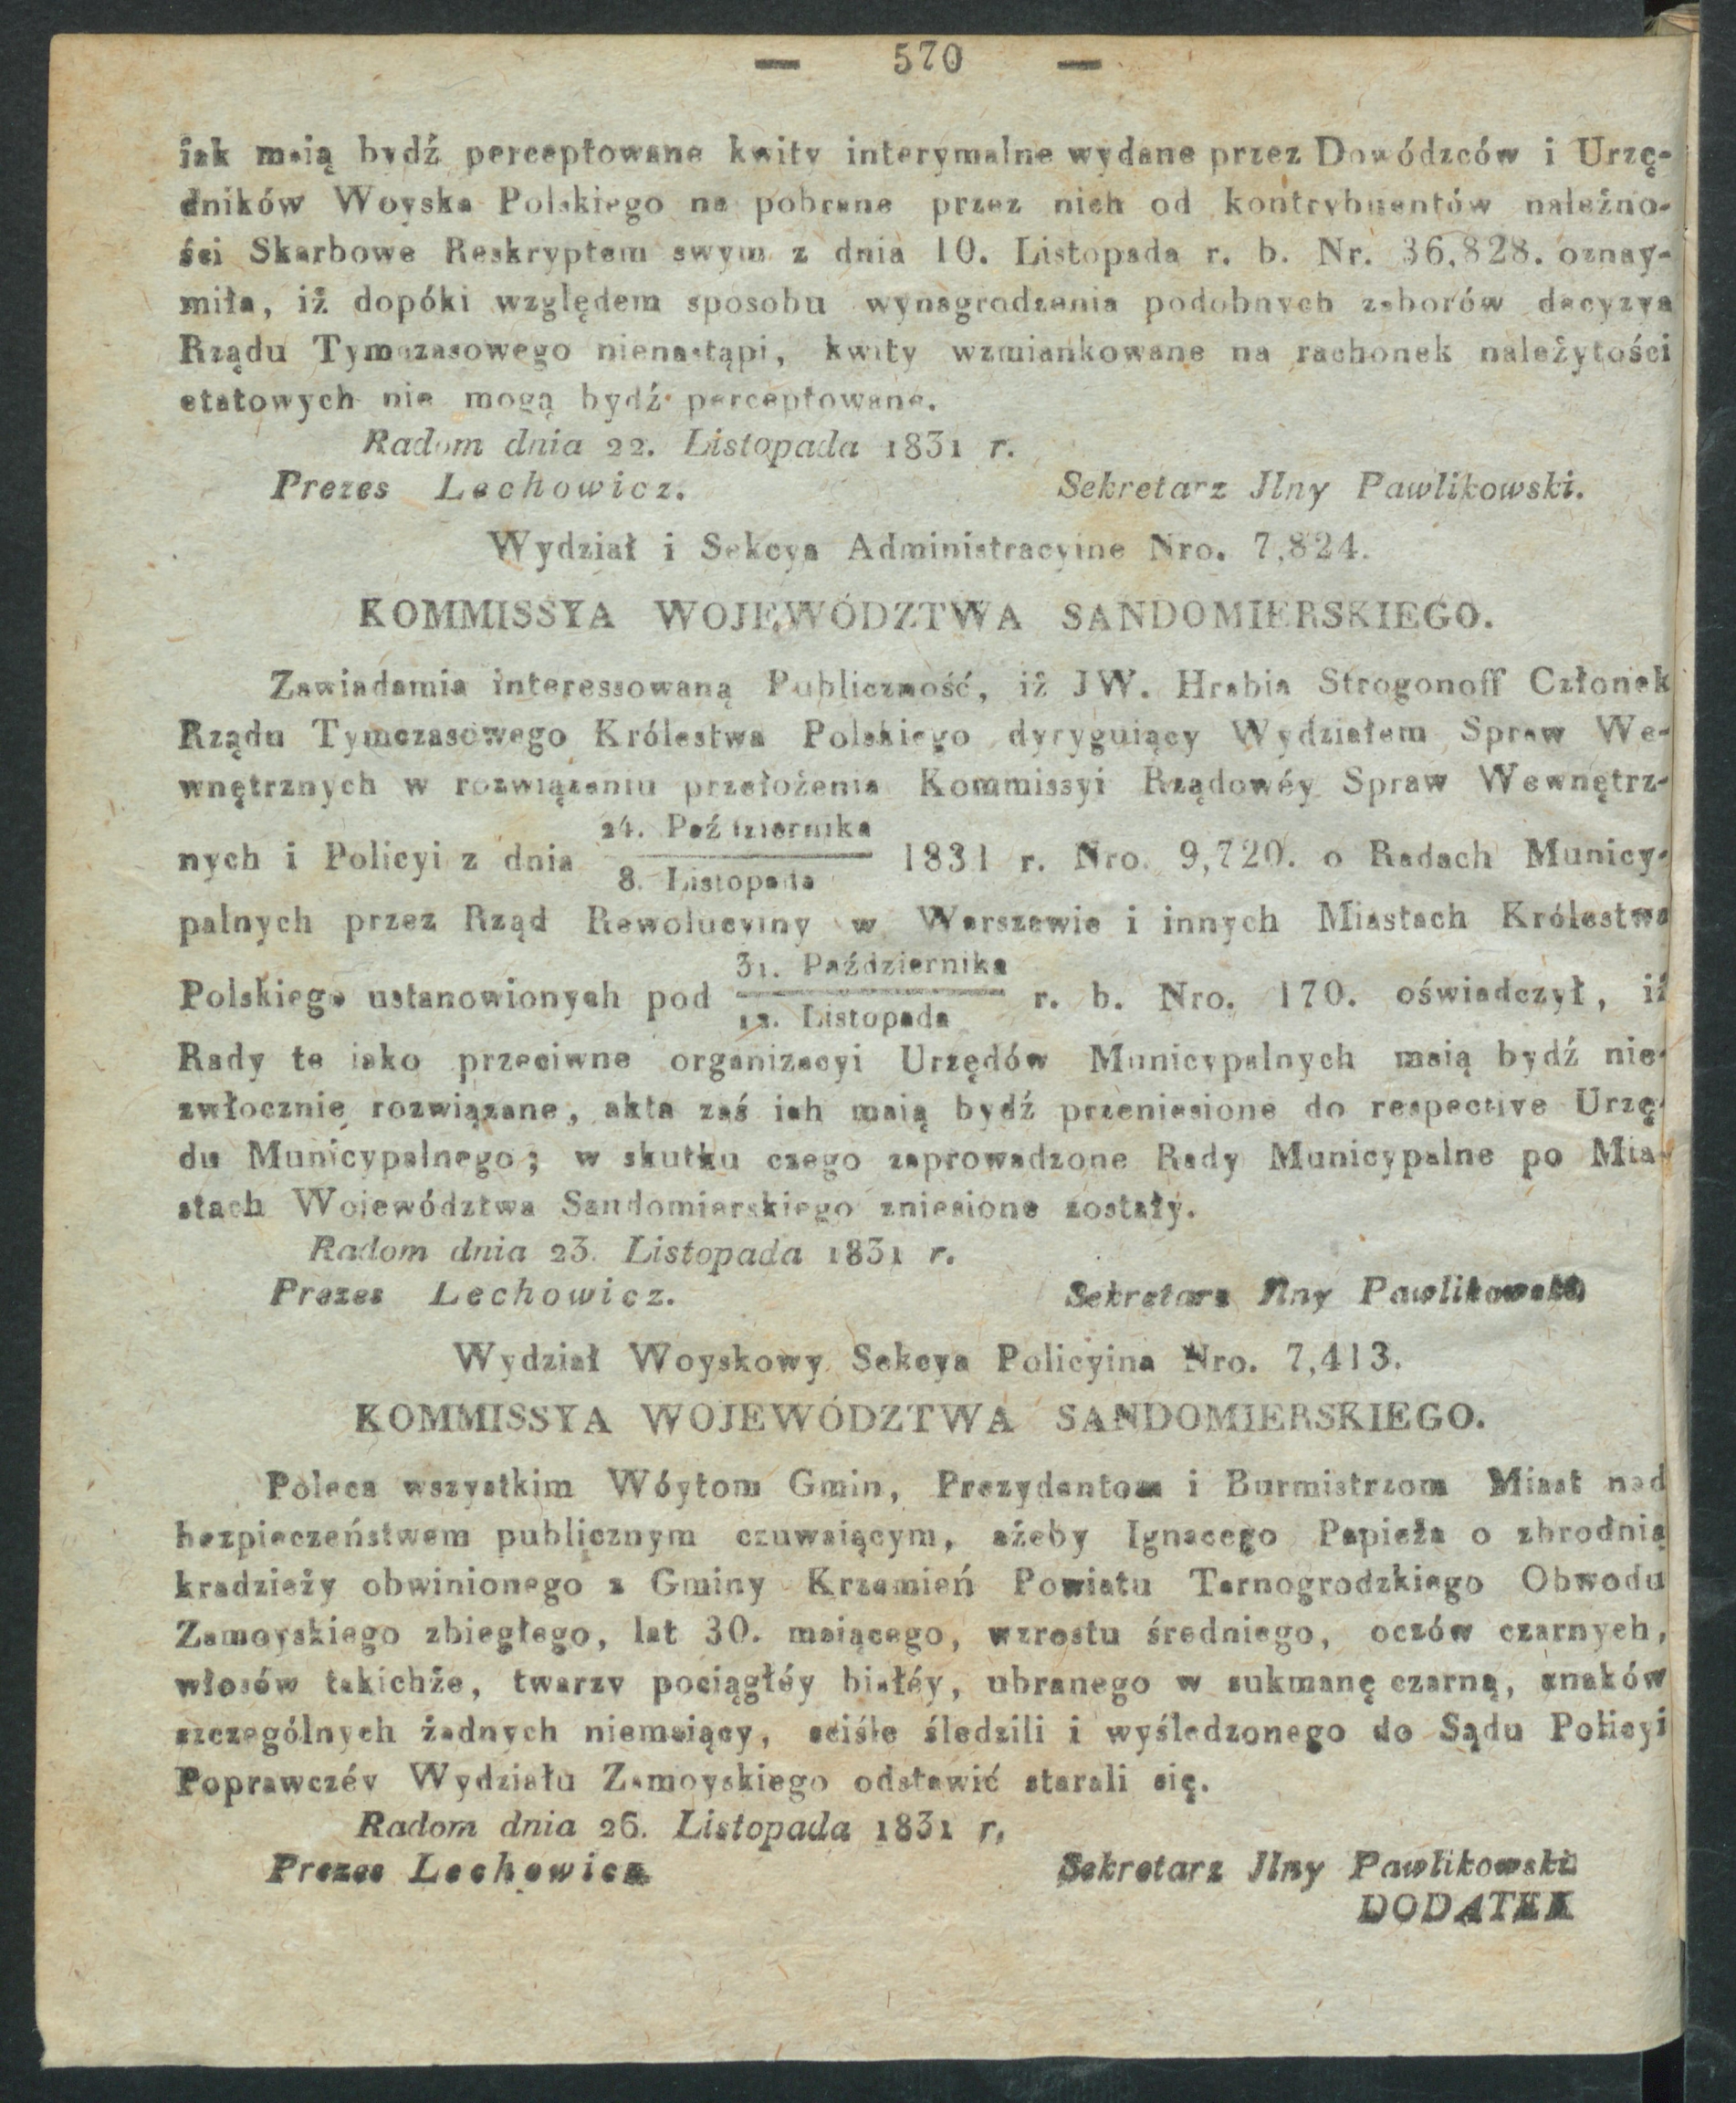 — 570 —
jak maią bydź perceptowane kwity interymalne wydane przez Dowódzców i Urzę-
dników Woyska Polskiego na pobrane przez nich od kontrybuentów należno-
ści Skarbowe Reskryptem swym z dnia 10. Listopada r. b. Nr. 36,828. oznay-
miła, iż dopóki względem sposobu wynagrodzenia podobnych zaborów decyzya
Rządu Tymczasowego nienastąpi, kwity wzmiankowane na rachonek należytości
etatowych nie mogą bydź perceptowane.
Radom dnia 22. Listopada 1831 r.
Prezes Lechowicz. Sekretarz Jlny Pawlikowski.
Wydział i Sekcya Administracyine Nro. 7,824.
KOMMISSYA WOJEWÓDZTWA SANDOMIERSKIEGO.
Zawiadamia interessowaną Publiczność, iż JW. Hrabia Strogonoff Członek
Rządu Tymczasowego Królestwa Polskiego dyryguiący Wydziałem Spraw We-
wnętrznych w rozwiązaniu przełożenia Kommissyi Rządowéy Spraw Wewnętrz-
nych i Policyi z dnia 24. Października / 8. Listopada 1831 r. Nro. 9,720. o Radach Municy-
palnych przez Rząd Rewolucyiny w Warszawie i innych Miastach Królestwa
Polskiego ustanowionych pod 31. Października / 12. Listopada r. b. Nro. 170. oświadczył, iż
Rady te iako przeciwne organizacyi Urzędów Municypalnych maią bydź nie-
zwłocznie rozwiązane, akta zaś ich maią bydź przeniesione do respective Urzę-
du Municypalnego; w skutku czego zaprowadzone Rady Municypalne po Mia-
stach Województwa Sandomierskiego zniesione zostały.
Radom dnia 23. Listopada 1831 r.
Prezes Lechowicz. Sekretarz Jlny Pawlikowski
Wydział Woyskowy Sekcya Policyina Nro. 7,413.
KOMMISSYA WOJEWÓDZTWA SANDOMIERSKIEGO.
Poleca wszystkim Wóytom Gmin, Prezydentom i Burmistrzom Miast nad
bezpieczeństwem publicznym czuwaiącym, ażeby Ignacego Papieża o zbrodnią
kradzieży obwinionego z Gminy Krzemień Powiatu Tarnogrodzkiego Obwodu
Zamoyskiego zbiegłego, lat 30. maiącego, wzrostu średniego, oczów czarnych,
włosów takichże, twarzy pociągłéy białéy, ubranego w sukmanę czarną, znaków
szczególnych żadnych niemaiący, sciśle śledzili i wyśledzonego do Sądu Policyi
Poprawczéy Wydziału Zamoyskiego odstawić starali się.
Radom dnia 26. Listopada 1831 r.
Prezes Lechowicz Sekretarz Jlny Pawlikowski
DODATEK